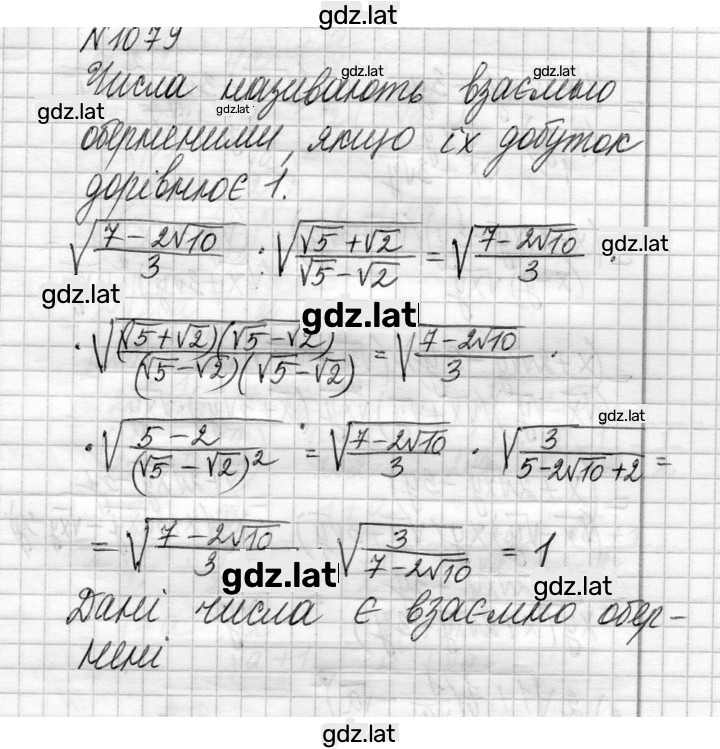 gdz.lat
№1079
Числа називають взаємно
gdz.lat
gdz.lat
gdz.lat
оберненими, якщо їх добуток
дорівнює 1.
√((7 − 2√10)/3) : √((√5 + √2)/(√5 − √2)) = √((7 − 2√10)/3) ·
gdz.lat
gdz.lat
gdz.lat
· √(((√5 + √2)(√5 − √2))/((√5 − √2)(√5 − √2))) = √((7 − 2√10)/3) ·
gdz.lat
· √((5 − 2)/(√5 − √2)²) = √((7 − 2√10)/3) · √(3/(5 − 2√10 + 2)) =
= √((7 − 2√10)/3) √(3/(7 − 2√10)) = 1
gdz.lat
gdz.lat
Дані числа є взаємно обер-
нені
gdz.lat